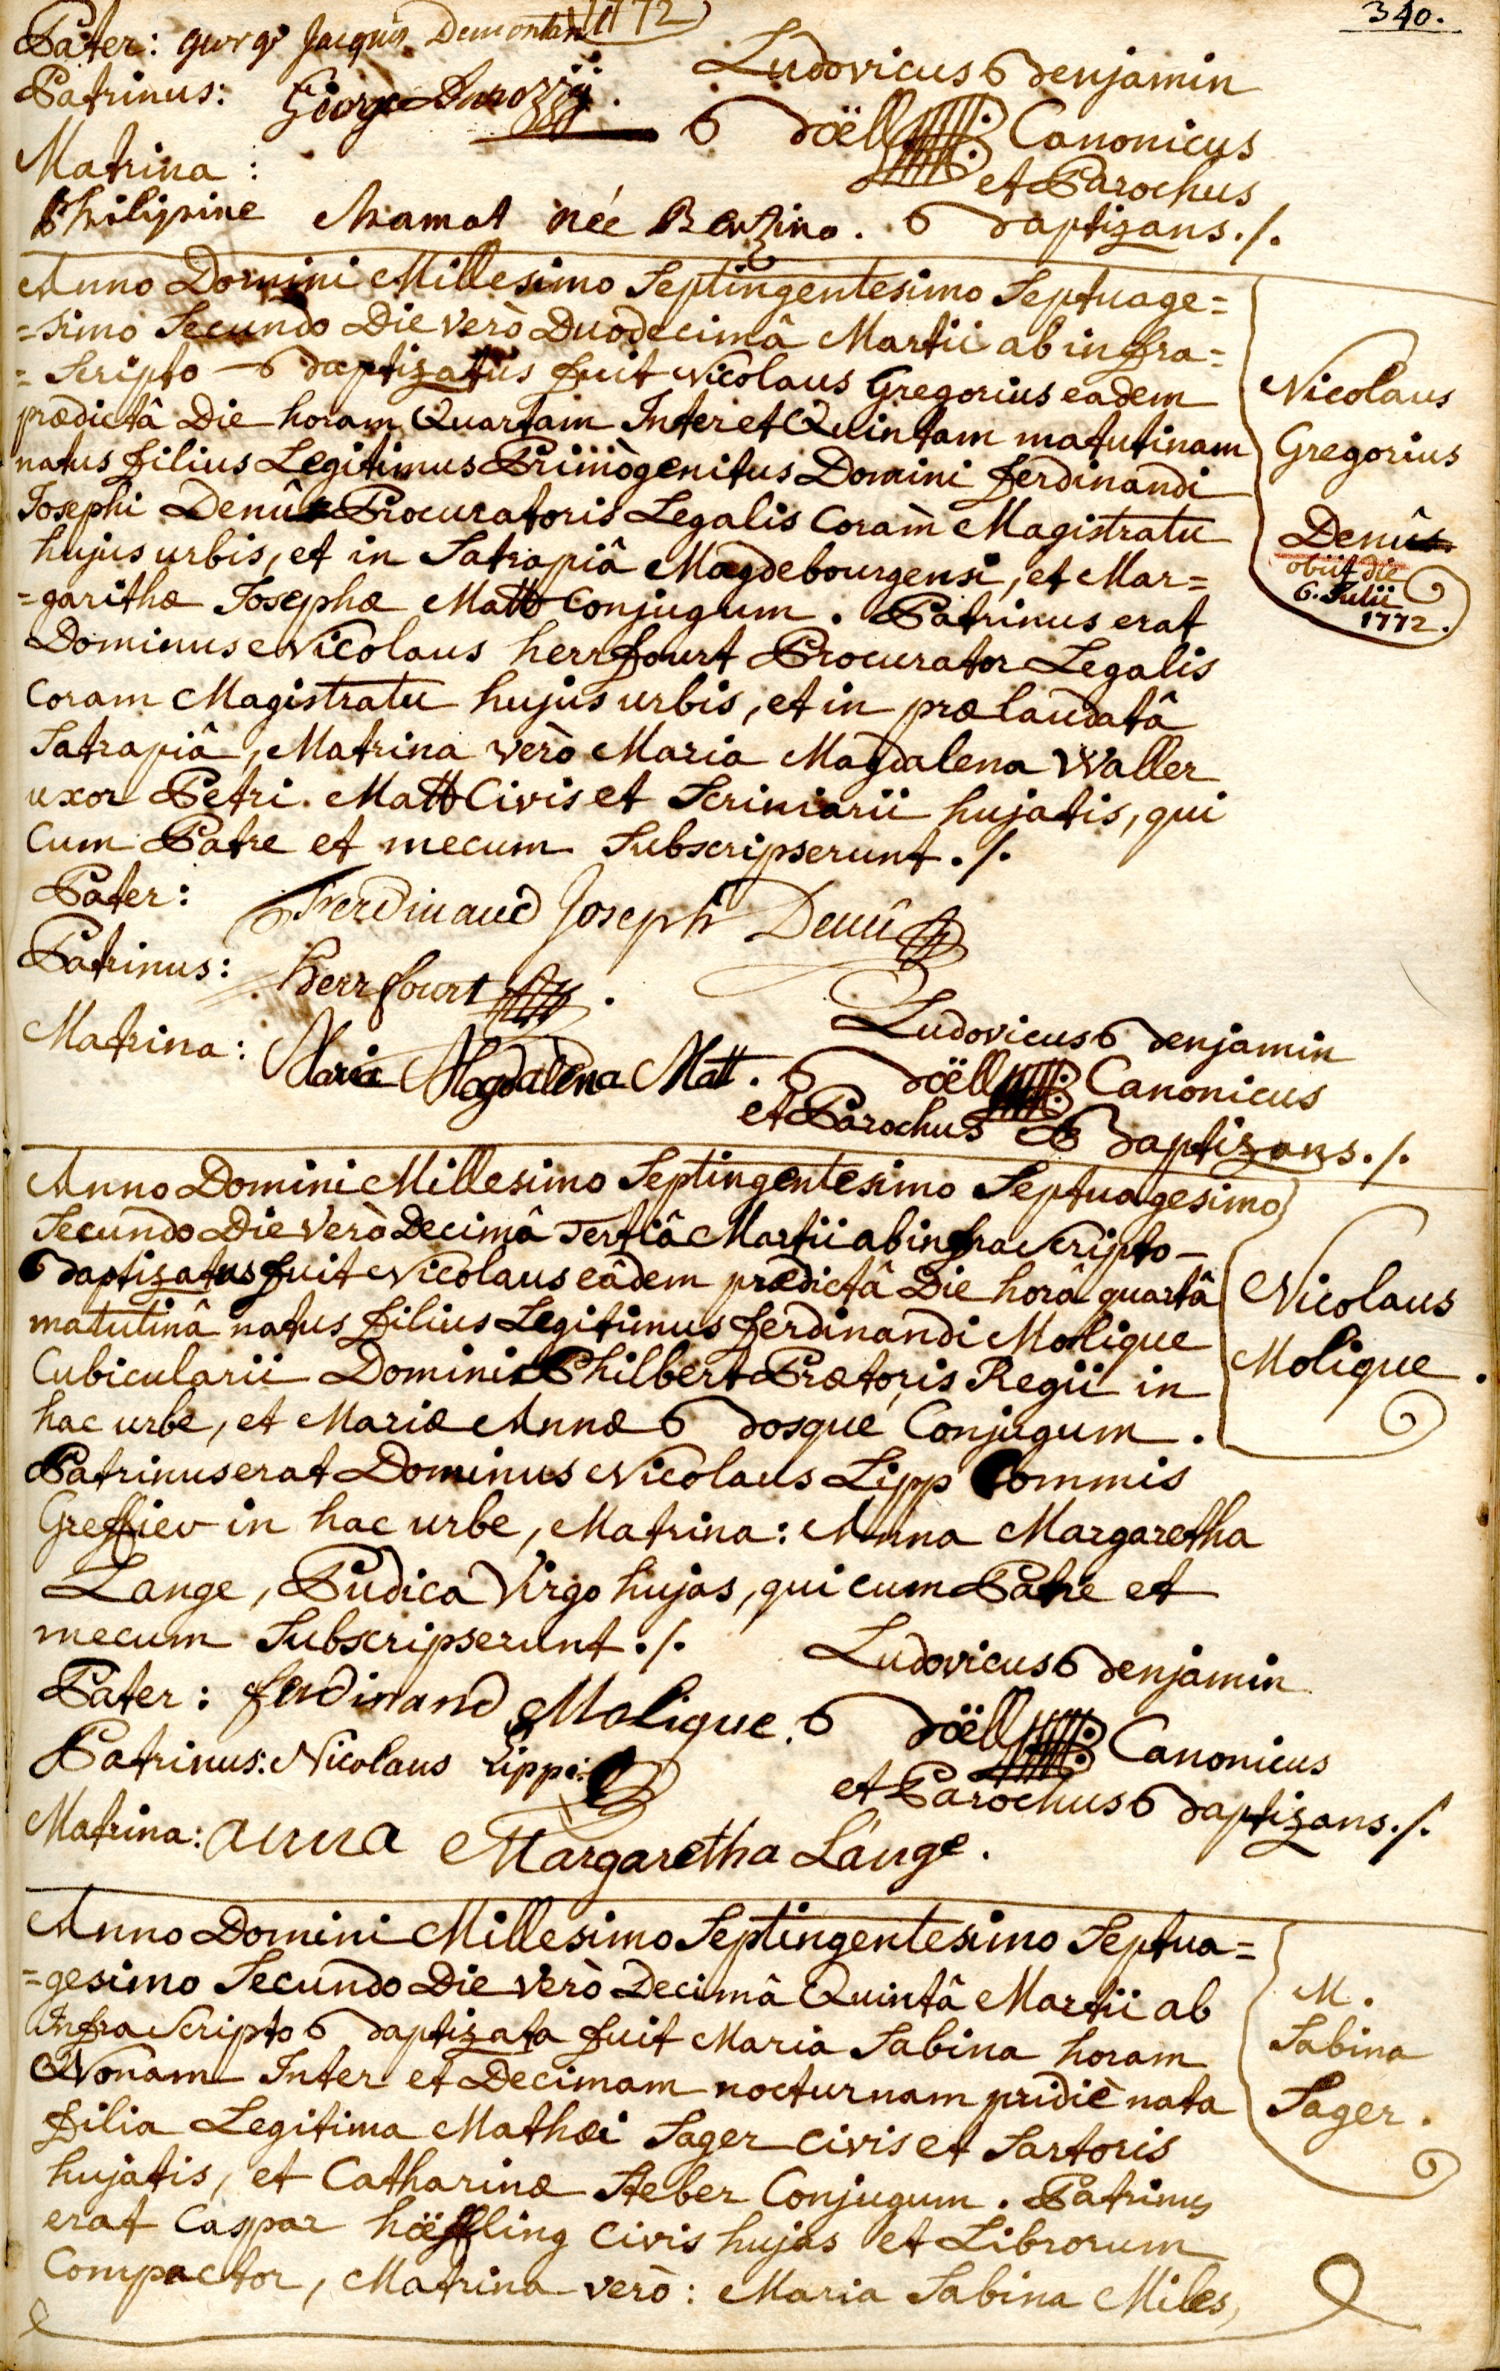 1772
340.
Pater: george Jacques Demontant
Patrinus: George
Matrina:
Philippine Mamat née Bertzino.
Ludovicus Benjamin
Boëll Canonicus
et Parochus
Baptizans ./.
Anno Domini Millesimo Septingentesimo Septuage=
=simo Secundo Die verò Duodecimâ Martii ab infra=
=Scripto Baptizatus fuit Nicolaus Gregorius eadem
prædictâ Die horam Quartam Inter et Quintam matutinam
natus filius Legitimus Primògenitus Domini ferdinandi
Josephi Denû Procuratoris Legalis Coràm Magistratu
hujus urbis, et in Satrapiâ Magdebourgensi, et Mar=
=garithæ Josephæ Matt Conjugum. Patrinus erat
Dominus Nicolaus herrfourt Procurator Legalis
Coram Magistratu hujus urbis, et in prælaudatâ
Satrapiâ, Matrina verò Maria Magdalena Waller
uxor Petri Matt Civis et Scriniarii hujatis, qui
Cum Patre et mecum Subscripserunt ./.
Nicolaus
Gregorius
Denû
obiit die
6. Julii
1772.
Pater: Ferdinand Joseph Denû
Patrinus: herrfourt
Matrina: Maria Magdalena Matt.
Ludovicus Benjamin
Boëll Canonicus
et Parochus Baptizans ./.
Anno Domini Millesimo Septingentesimo Septuagesimo
Secundo Die verò Decimâ Tertiâ Martii ab infra Scripto
Baptizatus fuit Nicolaus eâdem prædictâ Die horâ quartâ
matutinâ natus filius Legitimus ferdinandi Molique
Cubicularii Domini Philbert Prætoris Regii in
hac urbe, et Mariæ Annæ Bosque Conjugum.
Patrinus erat Dominus Nicolaus Lipp Commis
Greffier in hac urbe, Matrina: Anna Margaretha
Lange, Pudica Virgo hujas, qui cum Patre et
mecum Subscripserunt ./.
Nicolaus
Molique.
Pater: ferdinand Molique.
Patrinus: Nicolaus Lipp:
Matrina: anna Margaretha Lange.
Ludovicus Benjamin
Boëll Canonicus
et Parochus Baptizans ./.
Anno Domini Millesimo Septingentesimo Septua=
=gesimo Secundo Die verò Decimâ Quintâ Martii ab
infra Scripto Baptizata fuit Maria Sabina horam
Nonam Inter et Decimam nocturnam pridiè nata
filia Legitima Mathæi Sager civis et Sartoris
hujatis, et Catharinæ Steber Conjugum. Patrinus
erat Caspar höffling civis hujas et Librorum
Compactor, Matrina verò: Maria Sabina Miles,
M.
Sabina
Sager.